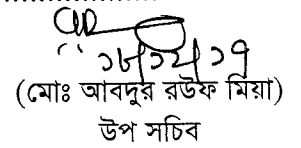 ১৮/১২/১৭
(মোঃ আবদুর রউফ মিয়া)
উপ সচিব